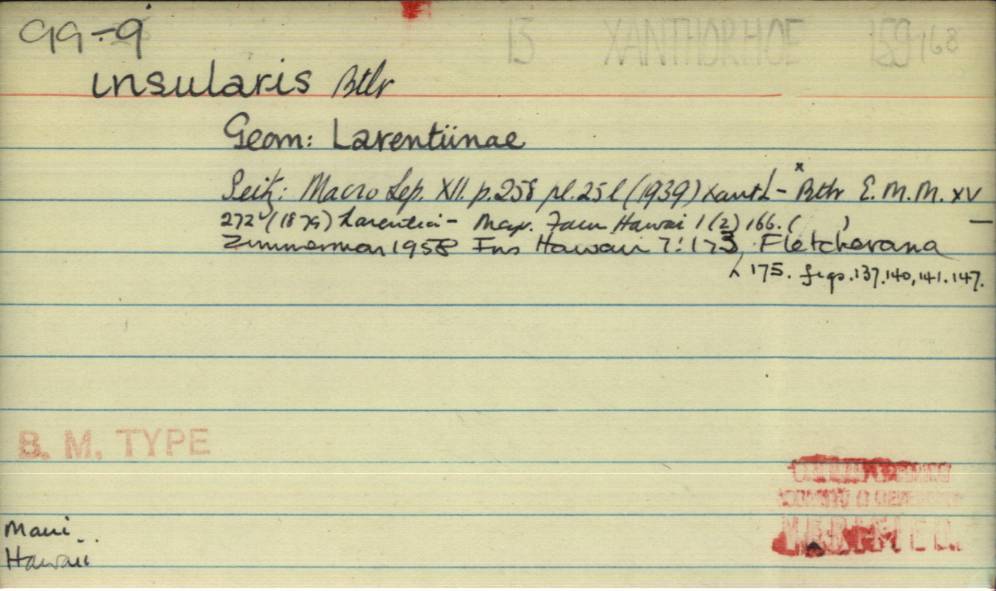 99÷9 15 XANTHORHOE 159 168
insularis Btlr
Geom: Larentiinae
Seitz: Macro Lep. XII. p.258 pl.25 l (1939) Xanth- Btlr E.M.M. XV
272 (1879) Larentia- Meyr. Faun Hawai 1(2) 166. ( ) —
Zimmerman 1958 Ins Hawaii 7:173, Fletcherana
175. figs.137.140,141.147.
B. M. TYPE
VERIFIED.
Maui
Hawaii